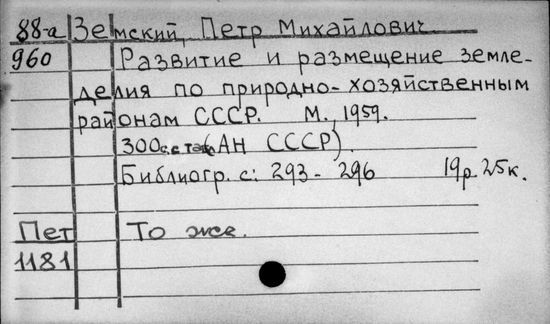 88-а Земский, Петр Михайлович
960 Развитие и размещение земле-
делия по природно-хозяйственным
районам СССР. М., 1959.
300с. с табл (АН СССР).
Библиогр. с: 293-296 19р. 25к.
Пет То же.
1181